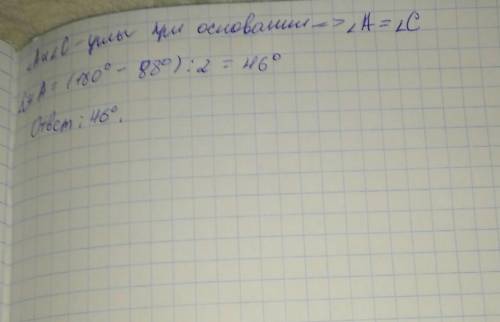 ∠A и ∠C - углы при основании => ∠A = ∠C
∠A = (180° - 88°) : 2 = 46°
Ответ: 46°.